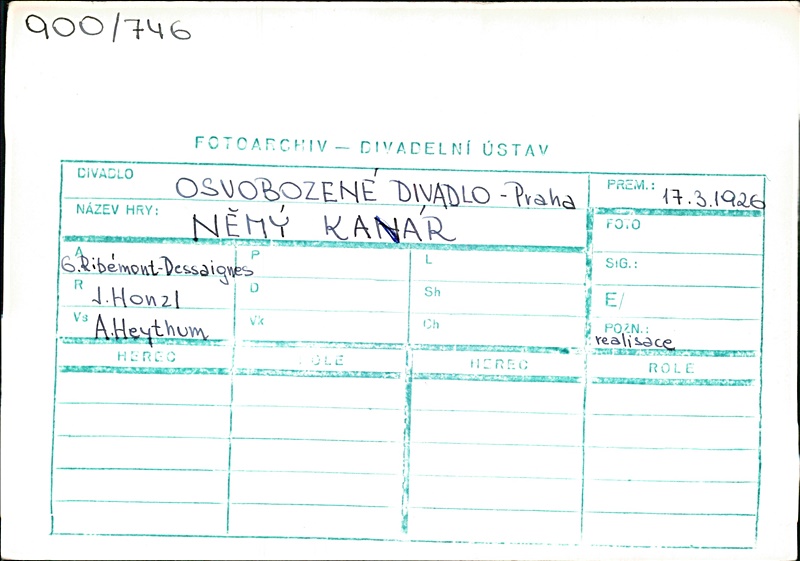 900/746
FOTOARCHIV — DIVADELNÍ ÚSTAV
DIVADLO OSVOBOZENÉ DIVADLO - Praha
PREM.: 17.3.1926
NÁZEV HRY: NĚMÝ KANÁR
FOTO
A G. Ribémont-Dessaignes P L
SIG.:
R J. Honzl D Sh
E/
Vs A. Heythum Vk Ch
POZN.: realisace
HEREC ROLE HEREC ROLE